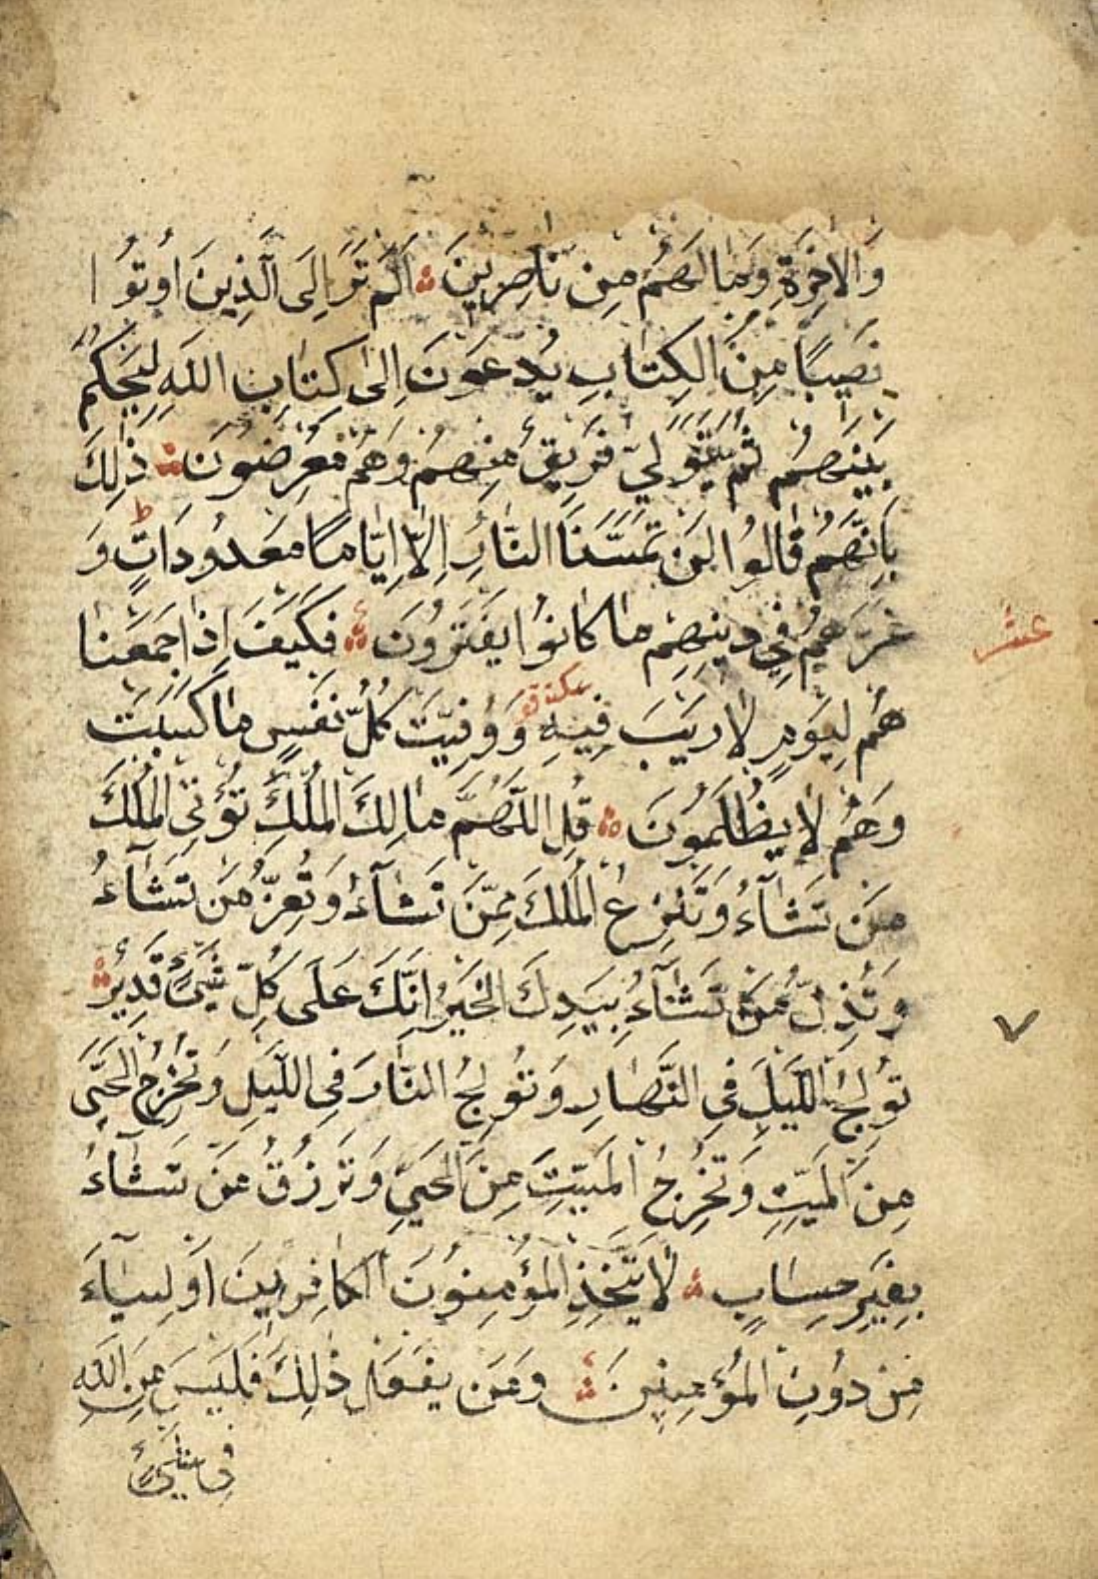 وَالاٰخِرَةِ وَمَا لَهُمْ مِن نَّاصِرِينَ اَلَمْ تَرَ اِلَى الَّذِينَ اُوتُوا
نَصِيبًا مِنَ الكِتَابِ يُدْعَوْنَ اِلىٰ كِتَابِ اللهِ لِيَحْكُمَ
بَيْنَهُمْ ثُمَّ يَتَوَلىّٰ فَرِيقٌ مِنْهُمْ وَهُمْ مُعْرِضُونَ ذٰلِكَ
بِاَنَّهُمْ قَالُوا لَنْ تَمَسَّنَا النَّارُ اِلاّٰ اَيَّامًا مَعْدُودَاتٍ ط وَ
غَرَّهُمْ فِي دِينِهِمْ مَا كَانُوا يَفْتَرُونَ فَكَيْفَ اِذَا جَمَعْنَا
عشر
هُمْ لِيَوْمٍ لاٰ رَيْبَ فِيهِ وَوُفِّيَتْ كُلُّ نَفْسٍ مَا كَسَبَتْ
وَهُمْ لاٰ يُظْلَمُونَ قُلِ اللّٰهُمَّ مَالِكَ المُلْكِ تُؤْتِي المُلْكَ
مَنْ تَشَآءُ وَتَنْزِعُ المُلْكَ مِمَّنْ تَشَآءُ وَتُعِزُّ مَنْ تَشَآءُ
وَتُذِلُّ مَنْ تَشَآءُ بِيَدِكَ الخَيْرُ اِنَّكَ عَلَى كُلِّ شَيْءٍ قَدِيرٌ
تُولِجُ اللَّيْلَ فِي النَّهَارِ وَتُولِجُ النَّارَ فِي اللَّيْلِ وَتُخْرِجُ الحَيَّ
مِنَ المَيِّتِ وَتُخْرِجُ المَيِّتَ مِنَ الحَيِّ وَتَرْزُقُ مَنْ تَشَآءُ
بِغَيْرِ حِسَابٍ لاٰ يَتَّخِذِ المُؤْمِنُونَ الكَافِرِينَ اَوْلِيَآءَ
مِنْ دُونِ المُؤْمِنِينَ وَمَنْ يَفْعَلْ ذٰلِكَ فَلَيْسَ مِنَ اللهِ
فِي شَيْءٍ